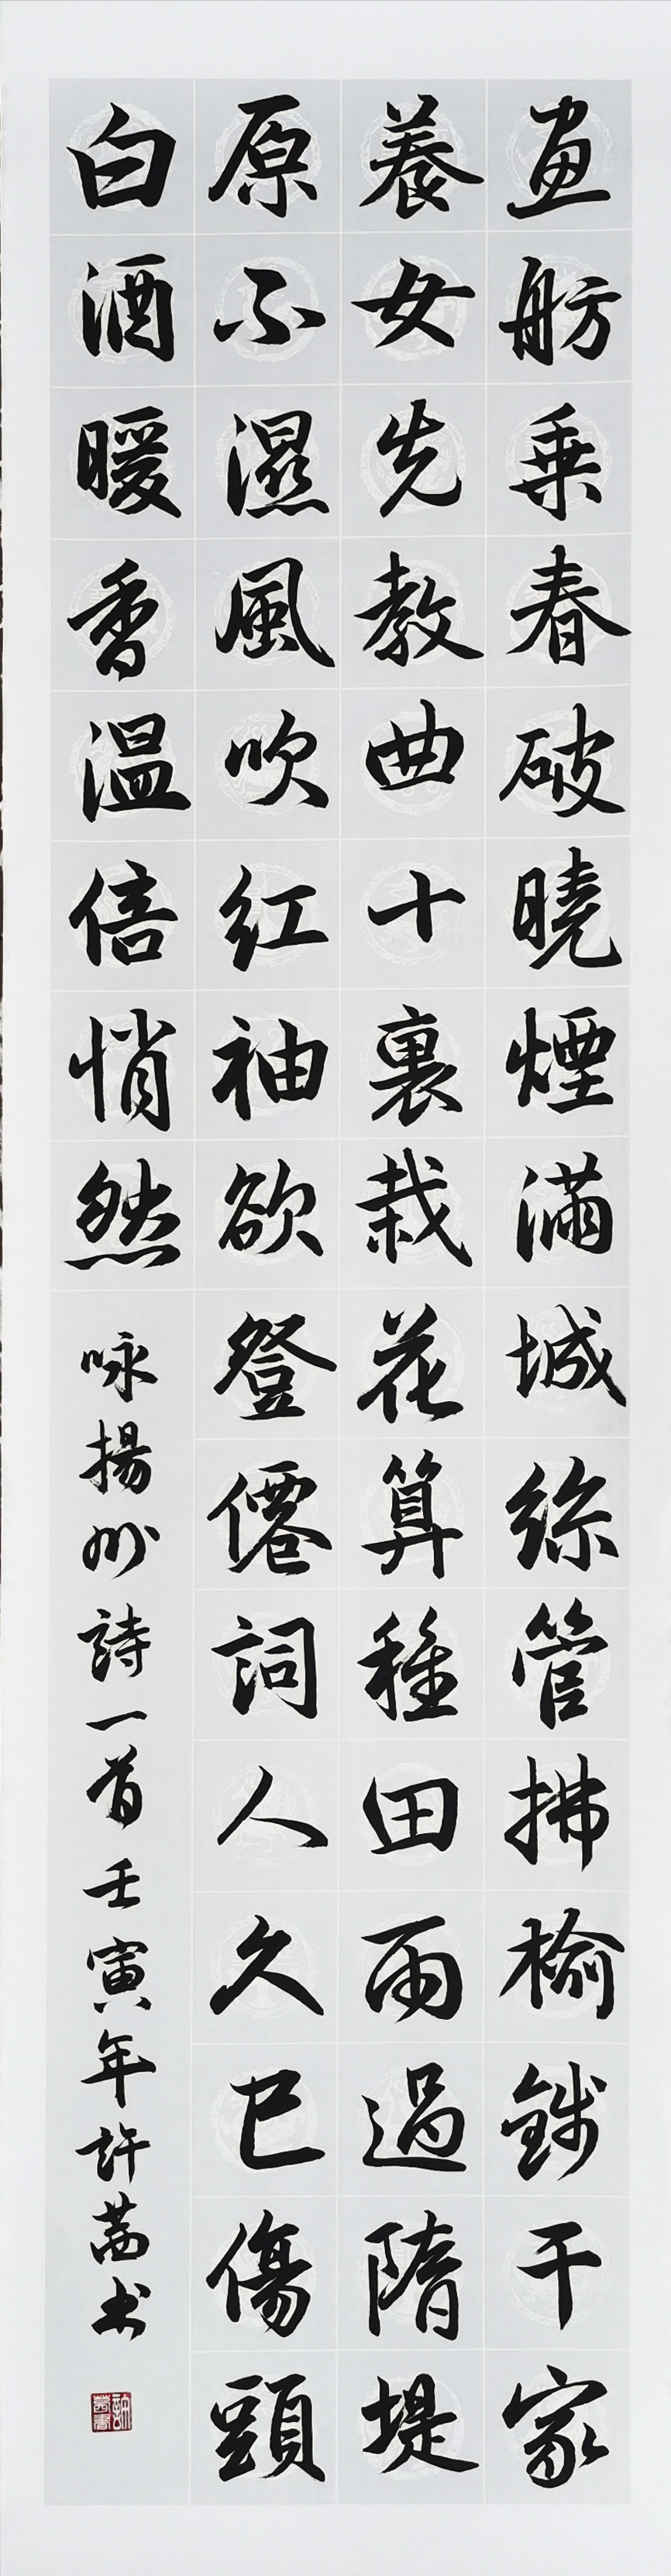 畫舫乘春破曉煙滿城絲管拂榆錢千家
養女先教曲十裏栽花算種田雨過隋堤
原不濕風吹紅袖欲登僊詞人久已傷頭
白酒暖香温倍悄然
咏揚州詩一首壬寅年許茜书